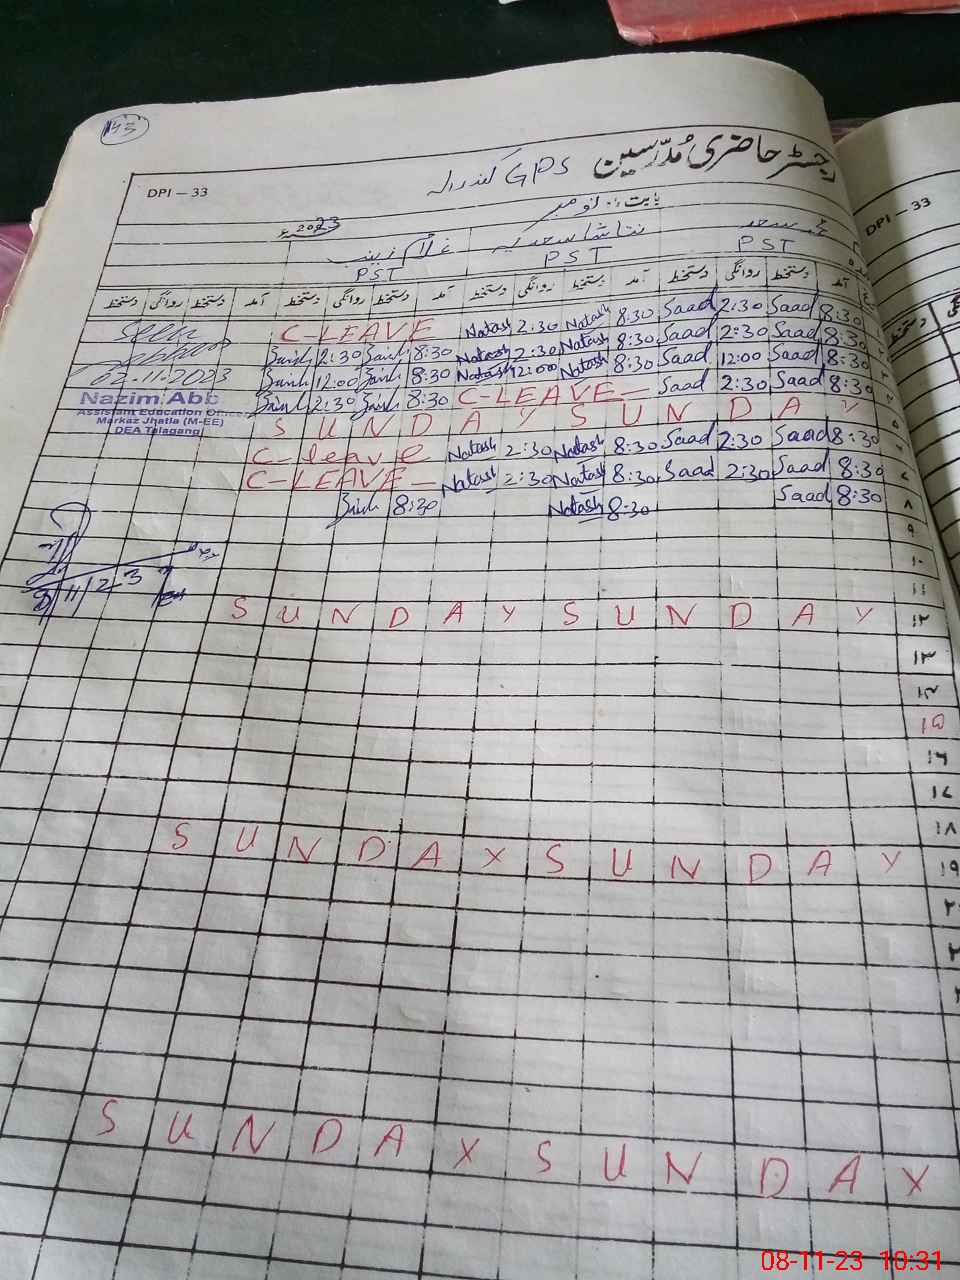 143
رجسٹر حاضری مُدرّسین GPS کندرالہ
DPI – 33
بابت ماہ نومبر 2023ء
محمد سعد نتاشا سعدیہ غلام زینب
PST PST PST
آمد دستخط روانگی دستخط آمد دستخط روانگی دستخط آمد دستخط روانگی دستخط آمد دستخط روانگی دستخط
Seen C-LEAVE Natash 2:30 Natash 8:30 Saad 2:30 Saad 8:30 ۱
2:30 8:30 Natash 2:30 Natash 8:30 Saad 2:30 Saad 8:30 ۲
02-11-2023 12:00 8:30 Natash 12:00 Natash 8:30 Saad 12:00 Saad 8:30 ۳
Nazim Abb 2:30 8:30 C-LEAVE– Saad 2:30 Saad 8:30 ۴
Assistant Education Office
Markaz Jhatla (M-EE)
DEA Talagang
SUNDAY SUNDAY ۵
C-leave Natash 2:30 Natash 8:30 Saad 2:30 Saad 8:30 ۶
C-LEAVE– Natash 2:30 Natash 8:30 Saad 2:30 Saad 8:30 ۷
8:30 Natash 8:30 Saad 8:30 ۸
۹
۱۰
8/11/23
۱۱
SUNDAY SUNDAY ۱۲
۱۳
۱۴
۱۵
۱۶
۱۷
۱۸
SUNDAY SUNDAY ۱۹
۲۰
SUNDAY SUNDAY
DPI – 33
دستخط
08-11-23 10:31